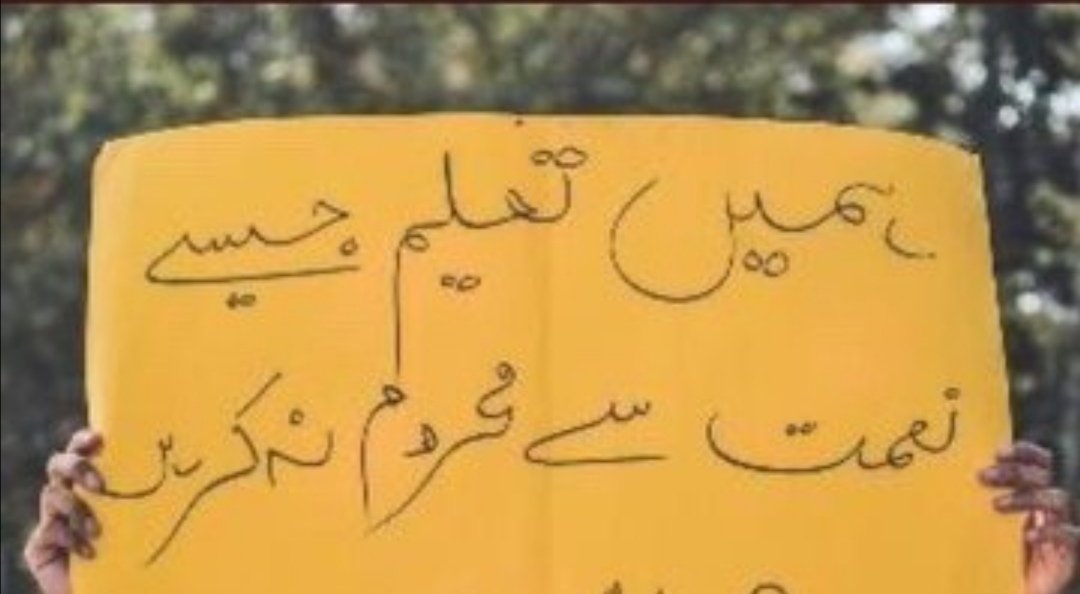 ہمیں تعلیم جیسے
نعمت سے محروم نہ کریں